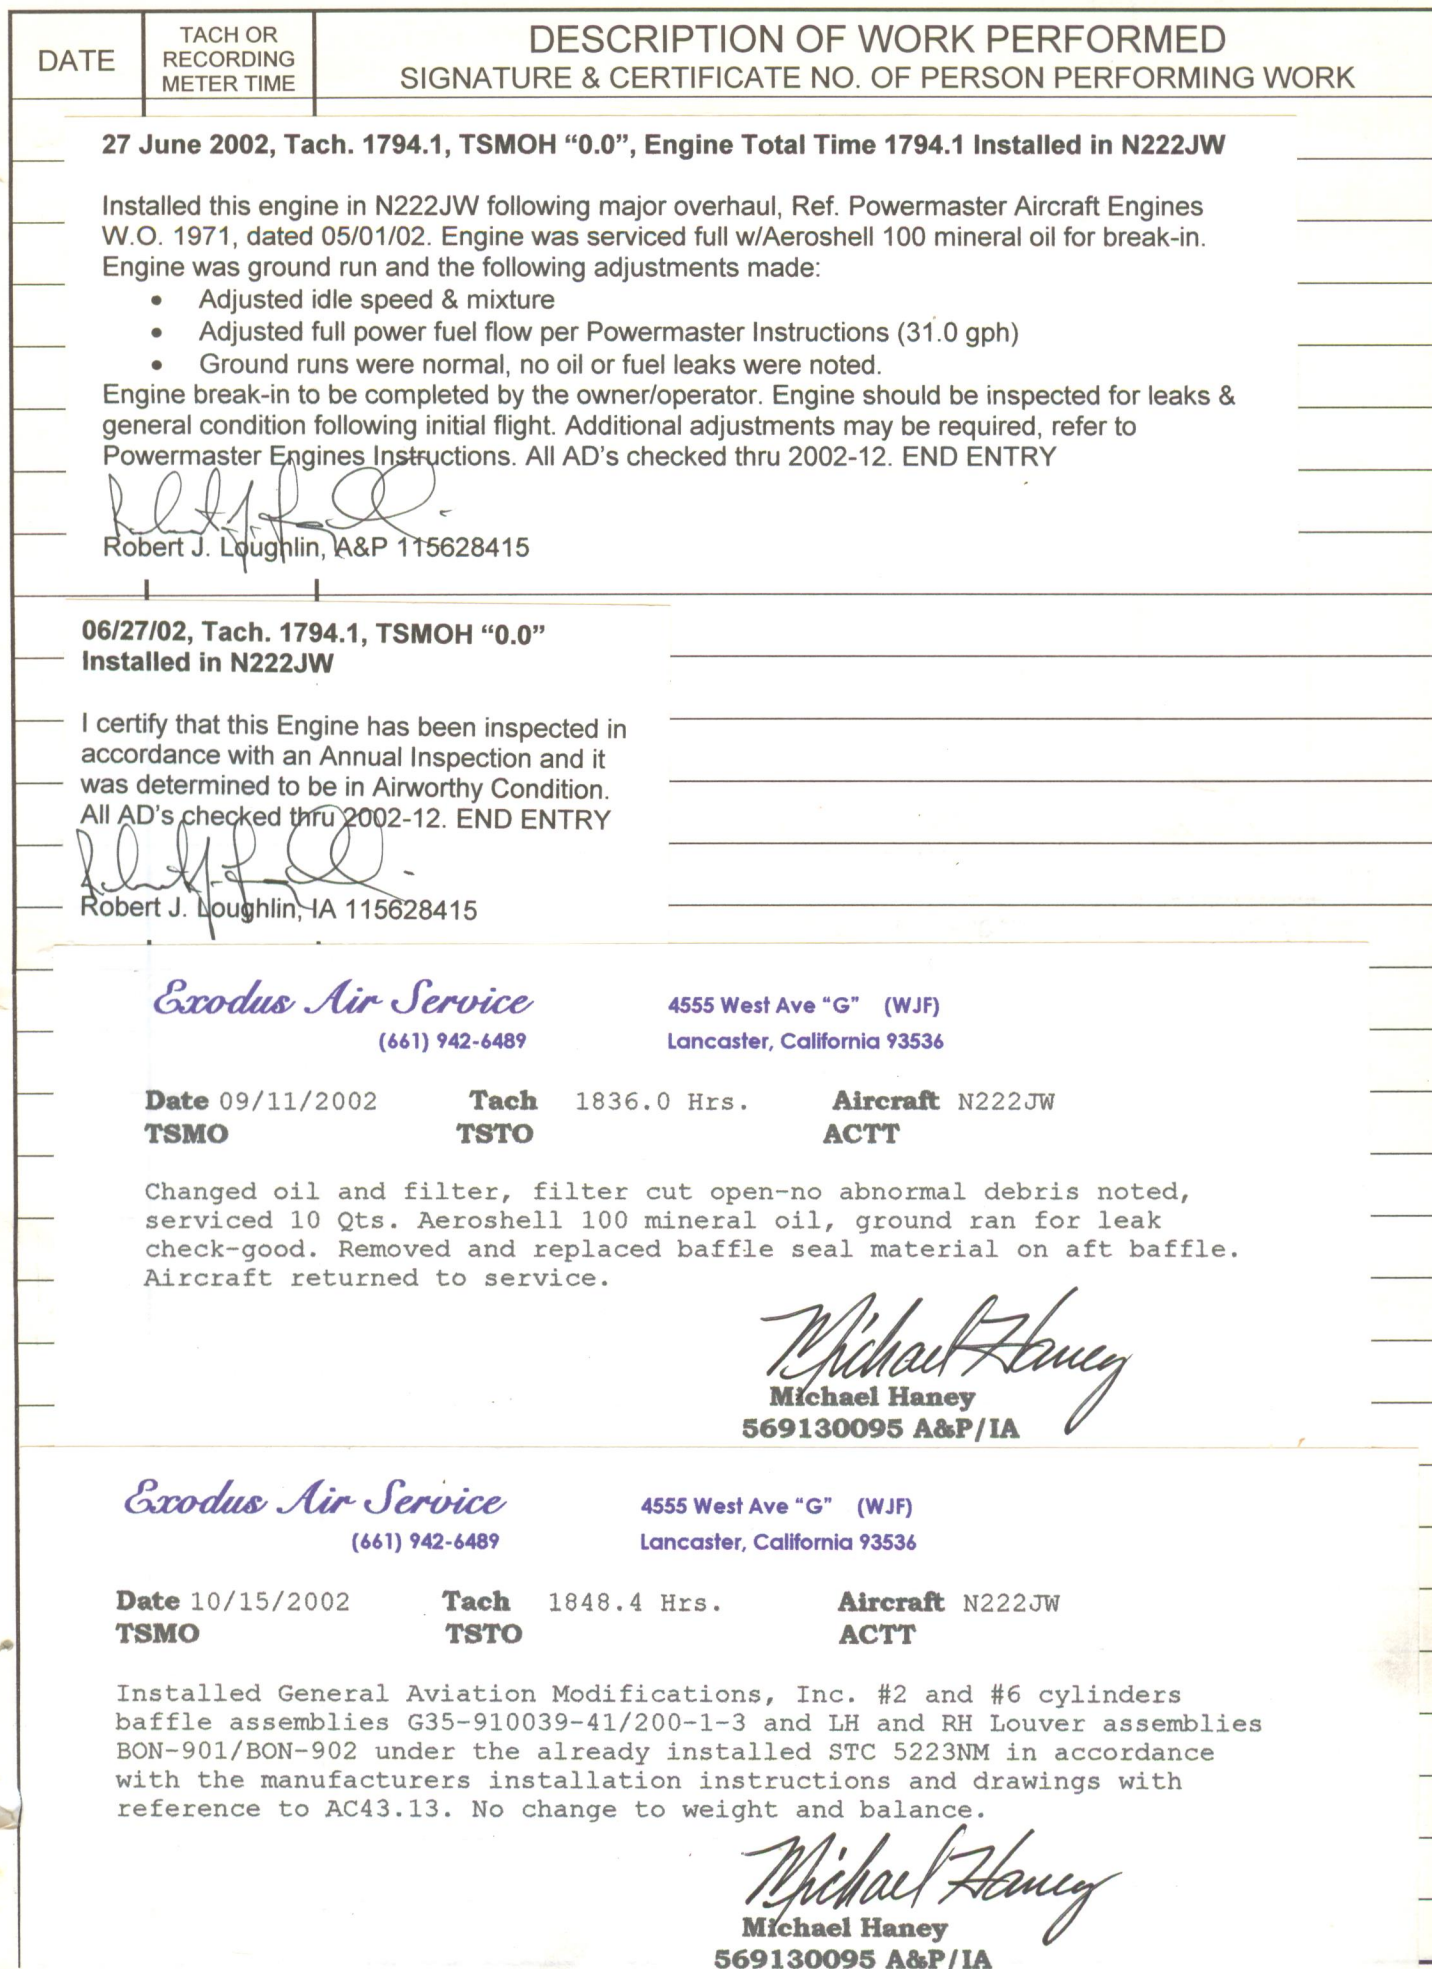 DATE
TACH OR
RECORDING
METER TIME
DESCRIPTION OF WORK PERFORMED
SIGNATURE & CERTIFICATE NO. OF PERSON PERFORMING WORK
27 June 2002, Tach. 1794.1, TSMOH “0.0”, Engine Total Time 1794.1 Installed in N222JW
Installed this engine in N222JW following major overhaul, Ref. Powermaster Aircraft Engines
W.O. 1971, dated 05/01/02. Engine was serviced full w/Aeroshell 100 mineral oil for break-in.
Engine was ground run and the following adjustments made:
• Adjusted idle speed & mixture
• Adjusted full power fuel flow per Powermaster Instructions (31.0 gph)
• Ground runs were normal, no oil or fuel leaks were noted.
Engine break-in to be completed by the owner/operator. Engine should be inspected for leaks &
general condition following initial flight. Additional adjustments may be required, refer to
Powermaster Engines Instructions. All AD’s checked thru 2002-12. END ENTRY
Robert J. Loughlin, A&P 115628415
06/27/02, Tach. 1794.1, TSMOH “0.0”
Installed in N222JW
I certify that this Engine has been inspected in
accordance with an Annual Inspection and it
was determined to be in Airworthy Condition.
All AD’s checked thru 2002-12. END ENTRY
Robert J. Loughlin, IA 115628415
Exodus Air Service 4555 West Ave “G” (WJF)
(661) 942-6489 Lancaster, California 93536
Date 09/11/2002 Tach 1836.0 Hrs. Aircraft N222JW
TSMO TSTO ACTT
Changed oil and filter, filter cut open-no abnormal debris noted,
serviced 10 Qts. Aeroshell 100 mineral oil, ground ran for leak
check-good. Removed and replaced baffle seal material on aft baffle.
Aircraft returned to service.
Michael Haney
Michael Haney
569130095 A&P/IA
Exodus Air Service 4555 West Ave “G” (WJF)
(661) 942-6489 Lancaster, California 93536
Date 10/15/2002 Tach 1848.4 Hrs. Aircraft N222JW
TSMO TSTO ACTT
Installed General Aviation Modifications, Inc. #2 and #6 cylinders
baffle assemblies G35-910039-41/200-1-3 and LH and RH Louver assemblies
BON-901/BON-902 under the already installed STC 5223NM in accordance
with the manufacturers installation instructions and drawings with
reference to AC43.13. No change to weight and balance.
Michael Haney
Michael Haney
569130095 A&P/IA